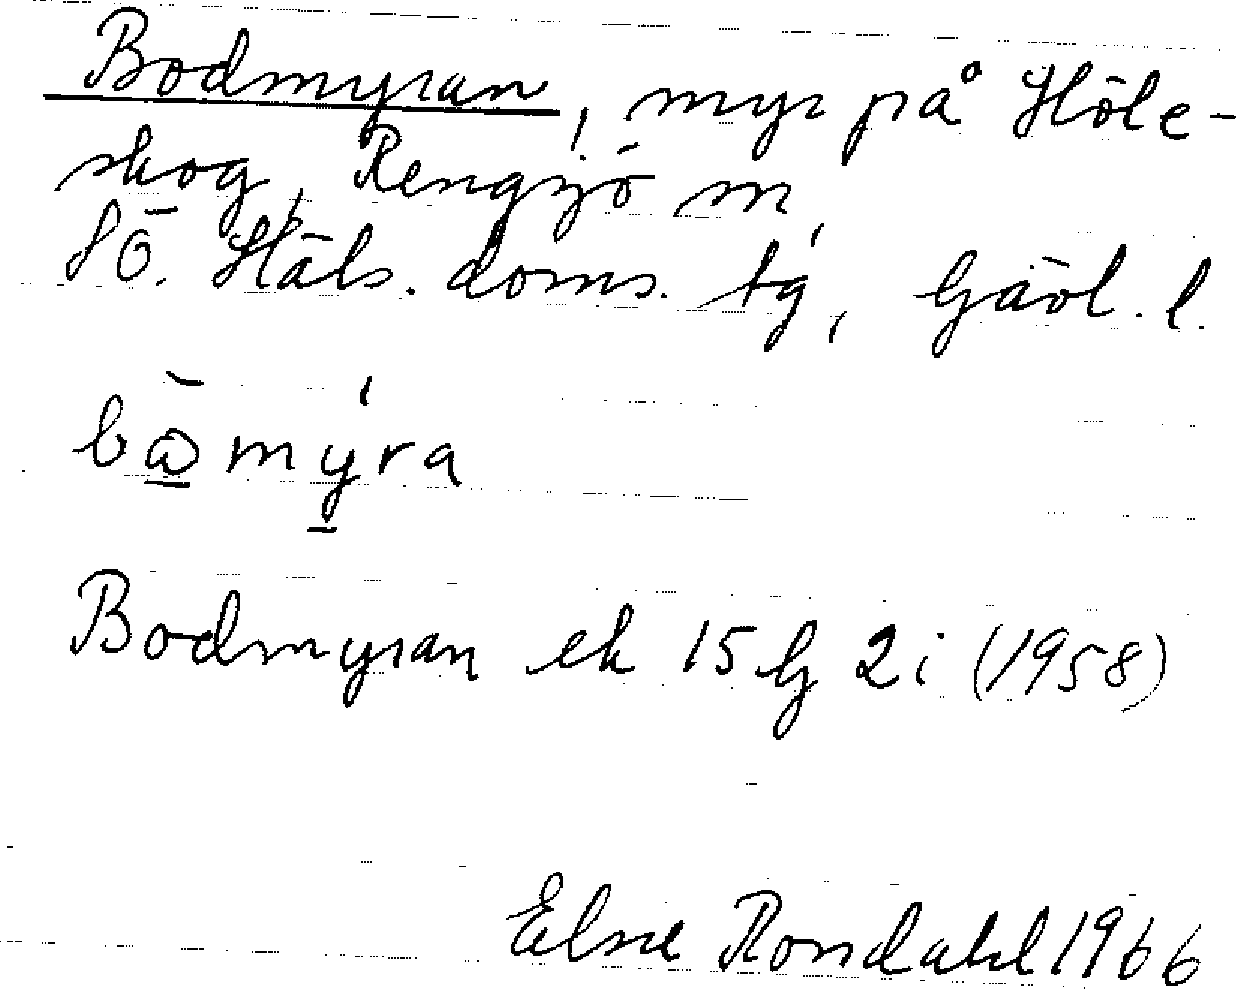 Bodmyran, myr på Höle-
skog, Rengsjö sn,
SÖ. Häls. doms. tg, Gävl. l.
bå̀mýra
Bodmyran ek 15 G 2 i (1958)
Elsie Rondahl 1966